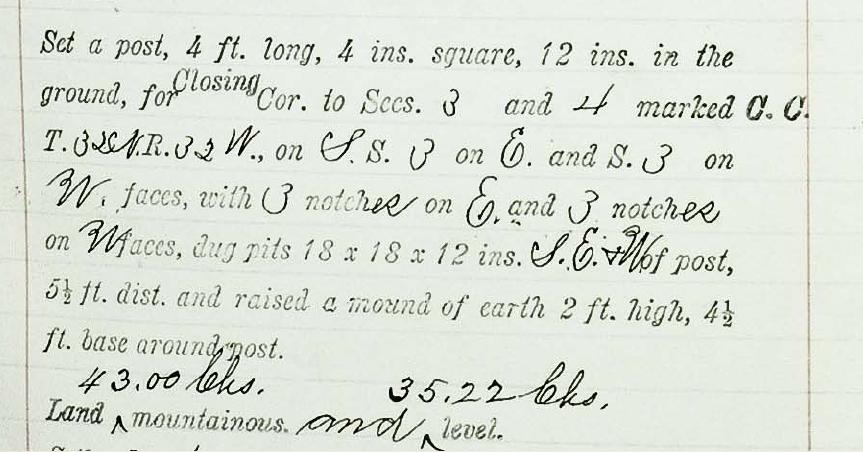 Set a post, 4 ft. long, 4 ins. square, 12 ins. in the
ground, for Closing Cor. to Secs. 3 and 4 marked C. C.
T. 32 N. R. 32 W., on S. S. 3 on E. and S. 3 on
W. faces, with 3 notches on E. and 3 notches
on W faces, dug pits 18 x 18 x 12 ins. S. E. & W of post,
5½ ft. dist. and raised a mound of earth 2 ft. high, 4½
ft. base around post.
43.00 Chs. 35.22 Chs.
Land ‸ mountainous. and ‸ level.